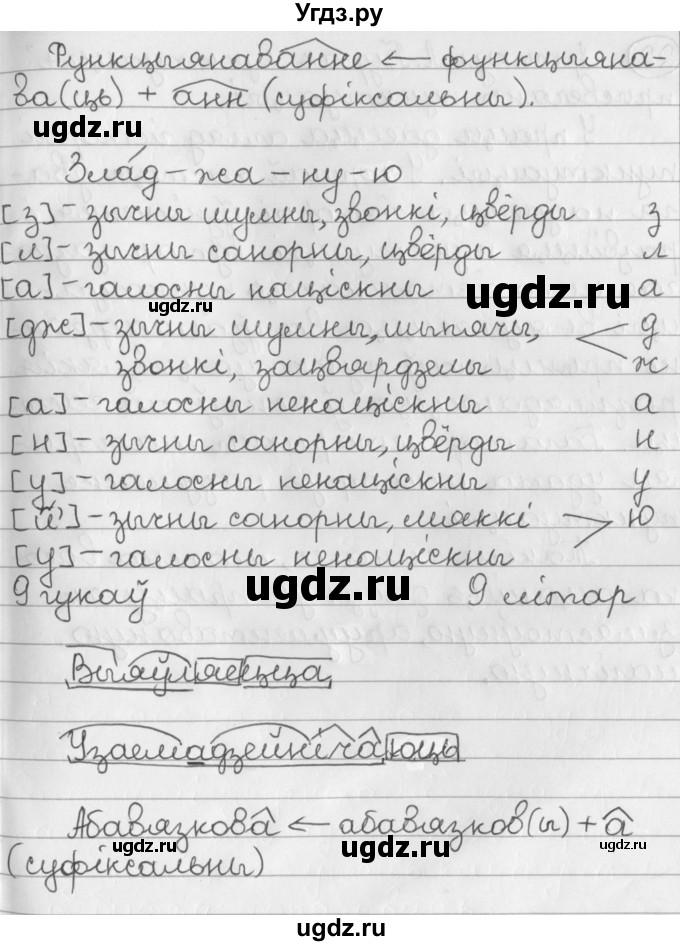 Угдз.ру
Функцыянаванне ← функцыяна-
ва(ць) + анн (суфіксальны).
ugdz.ru
ugdz.ru
Зла́д-жа-ну-ю
[з] - зычны шумны, звонкі, цвёрды з
[л] - зычны санорны, цвёрды л
[а] - галосны націскны а
ugdz.ru
ugdz.ru
[дж] - зычны шумны, шыпячы, д
звонкі, зацвярдзелы ж
[а] - галосны ненаціскны а
[н] - зычны санорны, цвёрды н
[у] - галосны ненаціскны у
[й'] - зычны санорны, мяккі ю
[у] - галосны ненаціскны
9 гукаў 9 літар
ugdz.ru
ugdz.ru
Выяўляецца
Узаемадзейнічаюць
Абавязкова ← абавязков(ы) + а
(суфіксальны)
ugdz.ru
ugdz.ru
ugdz.ru
ugdz.ru
ugdz.ru